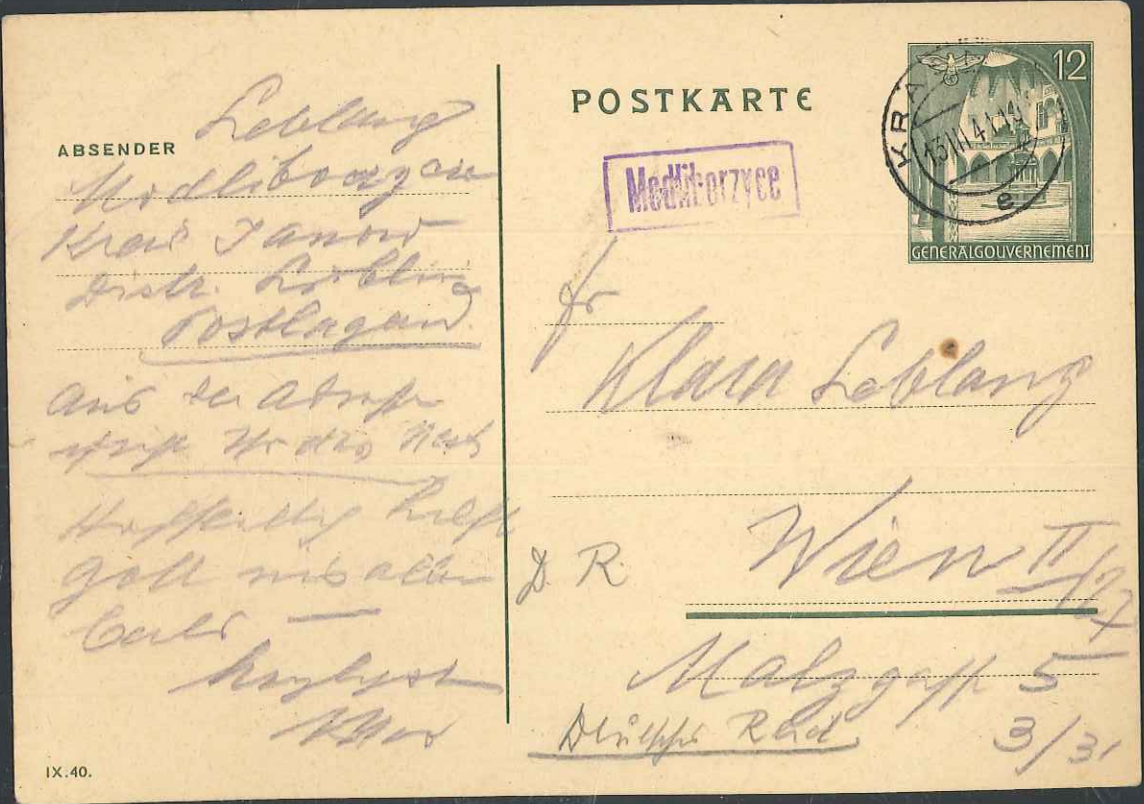 ABSENDER
Leblang
Modliborzyce
Kreis Janow
Distr. Lublin
Postlagernd
aus der Adresse
Ihr das
Hoffentlich hilft
Gott uns allen
bald —
IX.40.
POSTKARTE
Modliborzyce
12
KRA
13 III 41
e
GENERALGOUVERNEMENT
Fr
Klara Leblang
Wien II/27
D. R.
Malzgasse 5
3/31
Deutsches Reich